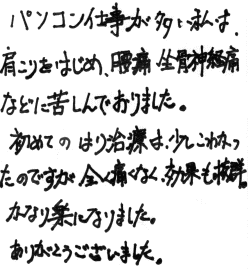 パソコン仕事が多い私は、
肩こりをはじめ、腰痛、坐骨神経痛
などに苦しんでおりました。
初めてのはり治療は、少しこわかっ
たのですが全く痛くなく、効果も抜群。
かなり楽になりました。
ありがとうございました。